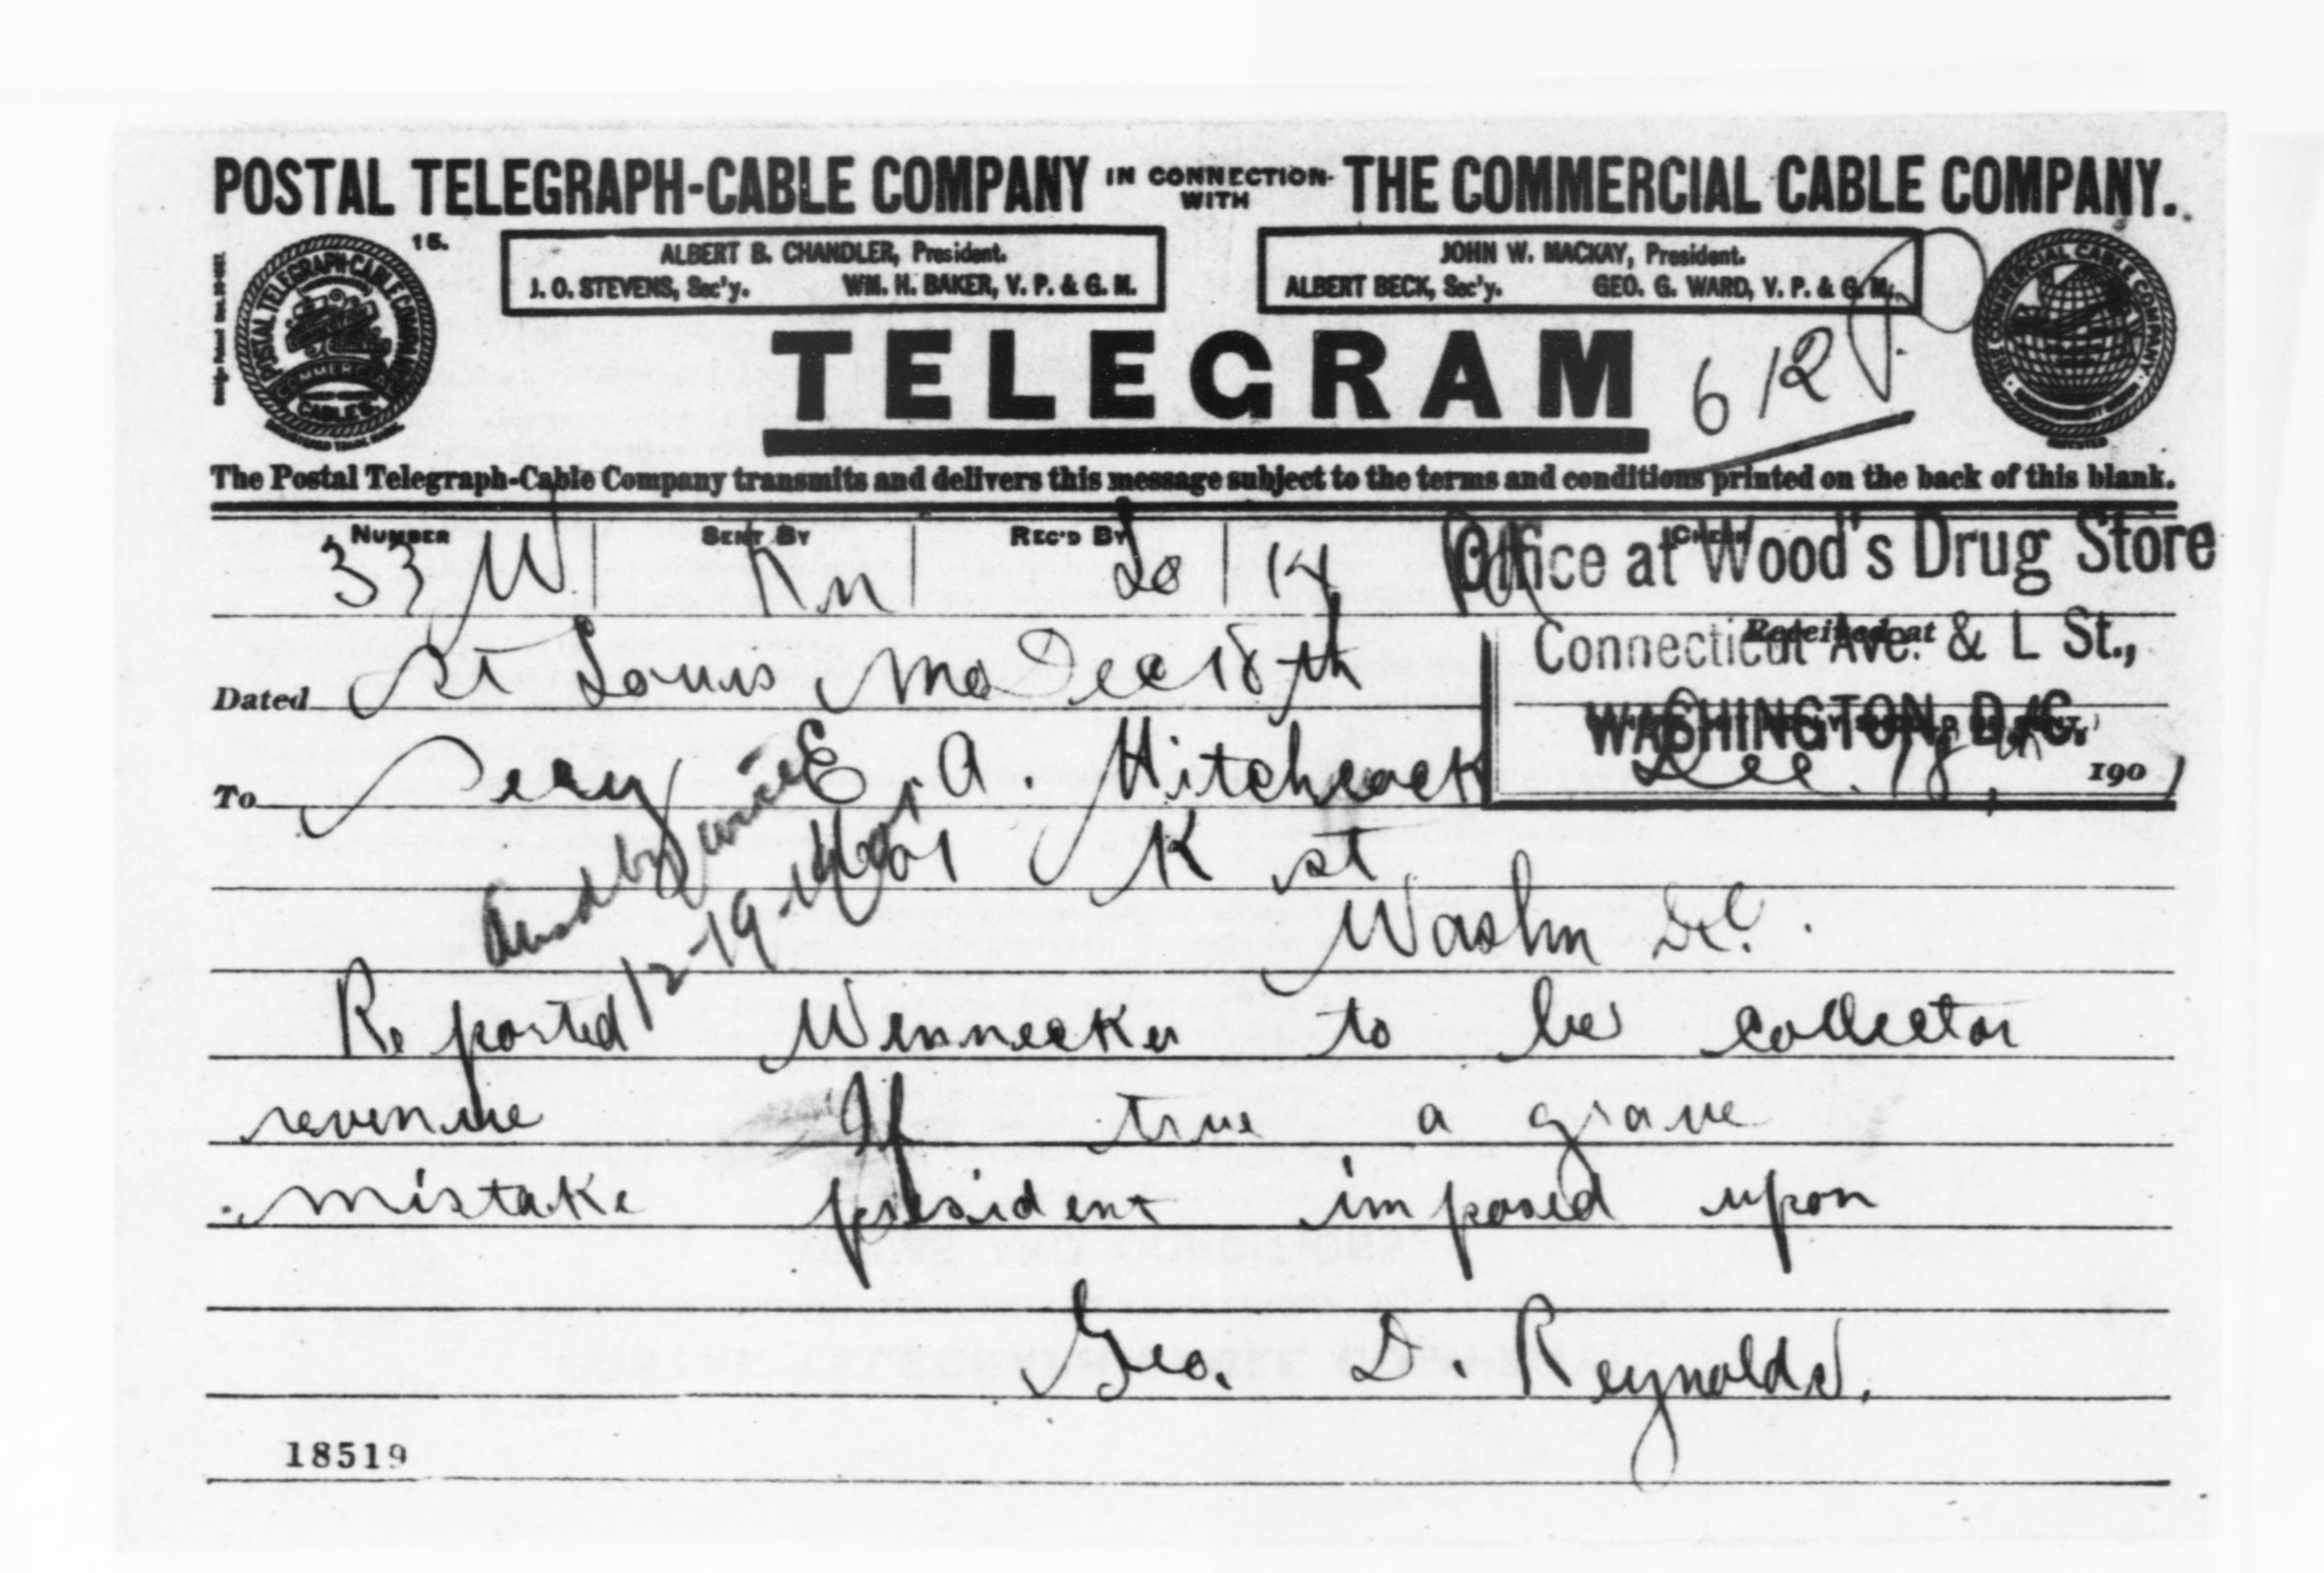 POSTAL TELEGRAPH-CABLE COMPANY IN CONNECTION WITH THE COMMERCIAL CABLE COMPANY.
15.
ALBERT B. CHANDLER, President.
J. O. STEVENS, Sec'y. WM. H. BAKER, V. P. & G. M.
JOHN W. MACKAY, President.
ALBERT BECK, Sec'y. GEO. G. WARD, V. P. & G. M.
POSTAL TELEGRAPH-CABLE COMPANY
COMMERCIAL CABLES
COMMERCIAL CABLE COMPANY
TELEGRAM 612 P.
The Postal Telegraph-Cable Company transmits and delivers this message subject to the terms and conditions printed on the back of this blank.
NUMBER SENT BY REC'D BY CHECK
33 W Kn 14
Office at Wood's Drug Store
Received at
Connecticut Ave. & L St.,
WASHINGTON, D.C.
Dated St Louis Mo Dec 18th
Dec. 18, 1901
To Secy E. A. Hitchcock
K st
Washn D.C.
12-19-
Reported Wennecker to be collector
revenue If true a grave
mistake president imposed upon
Geo. D. Reynolds.
18519